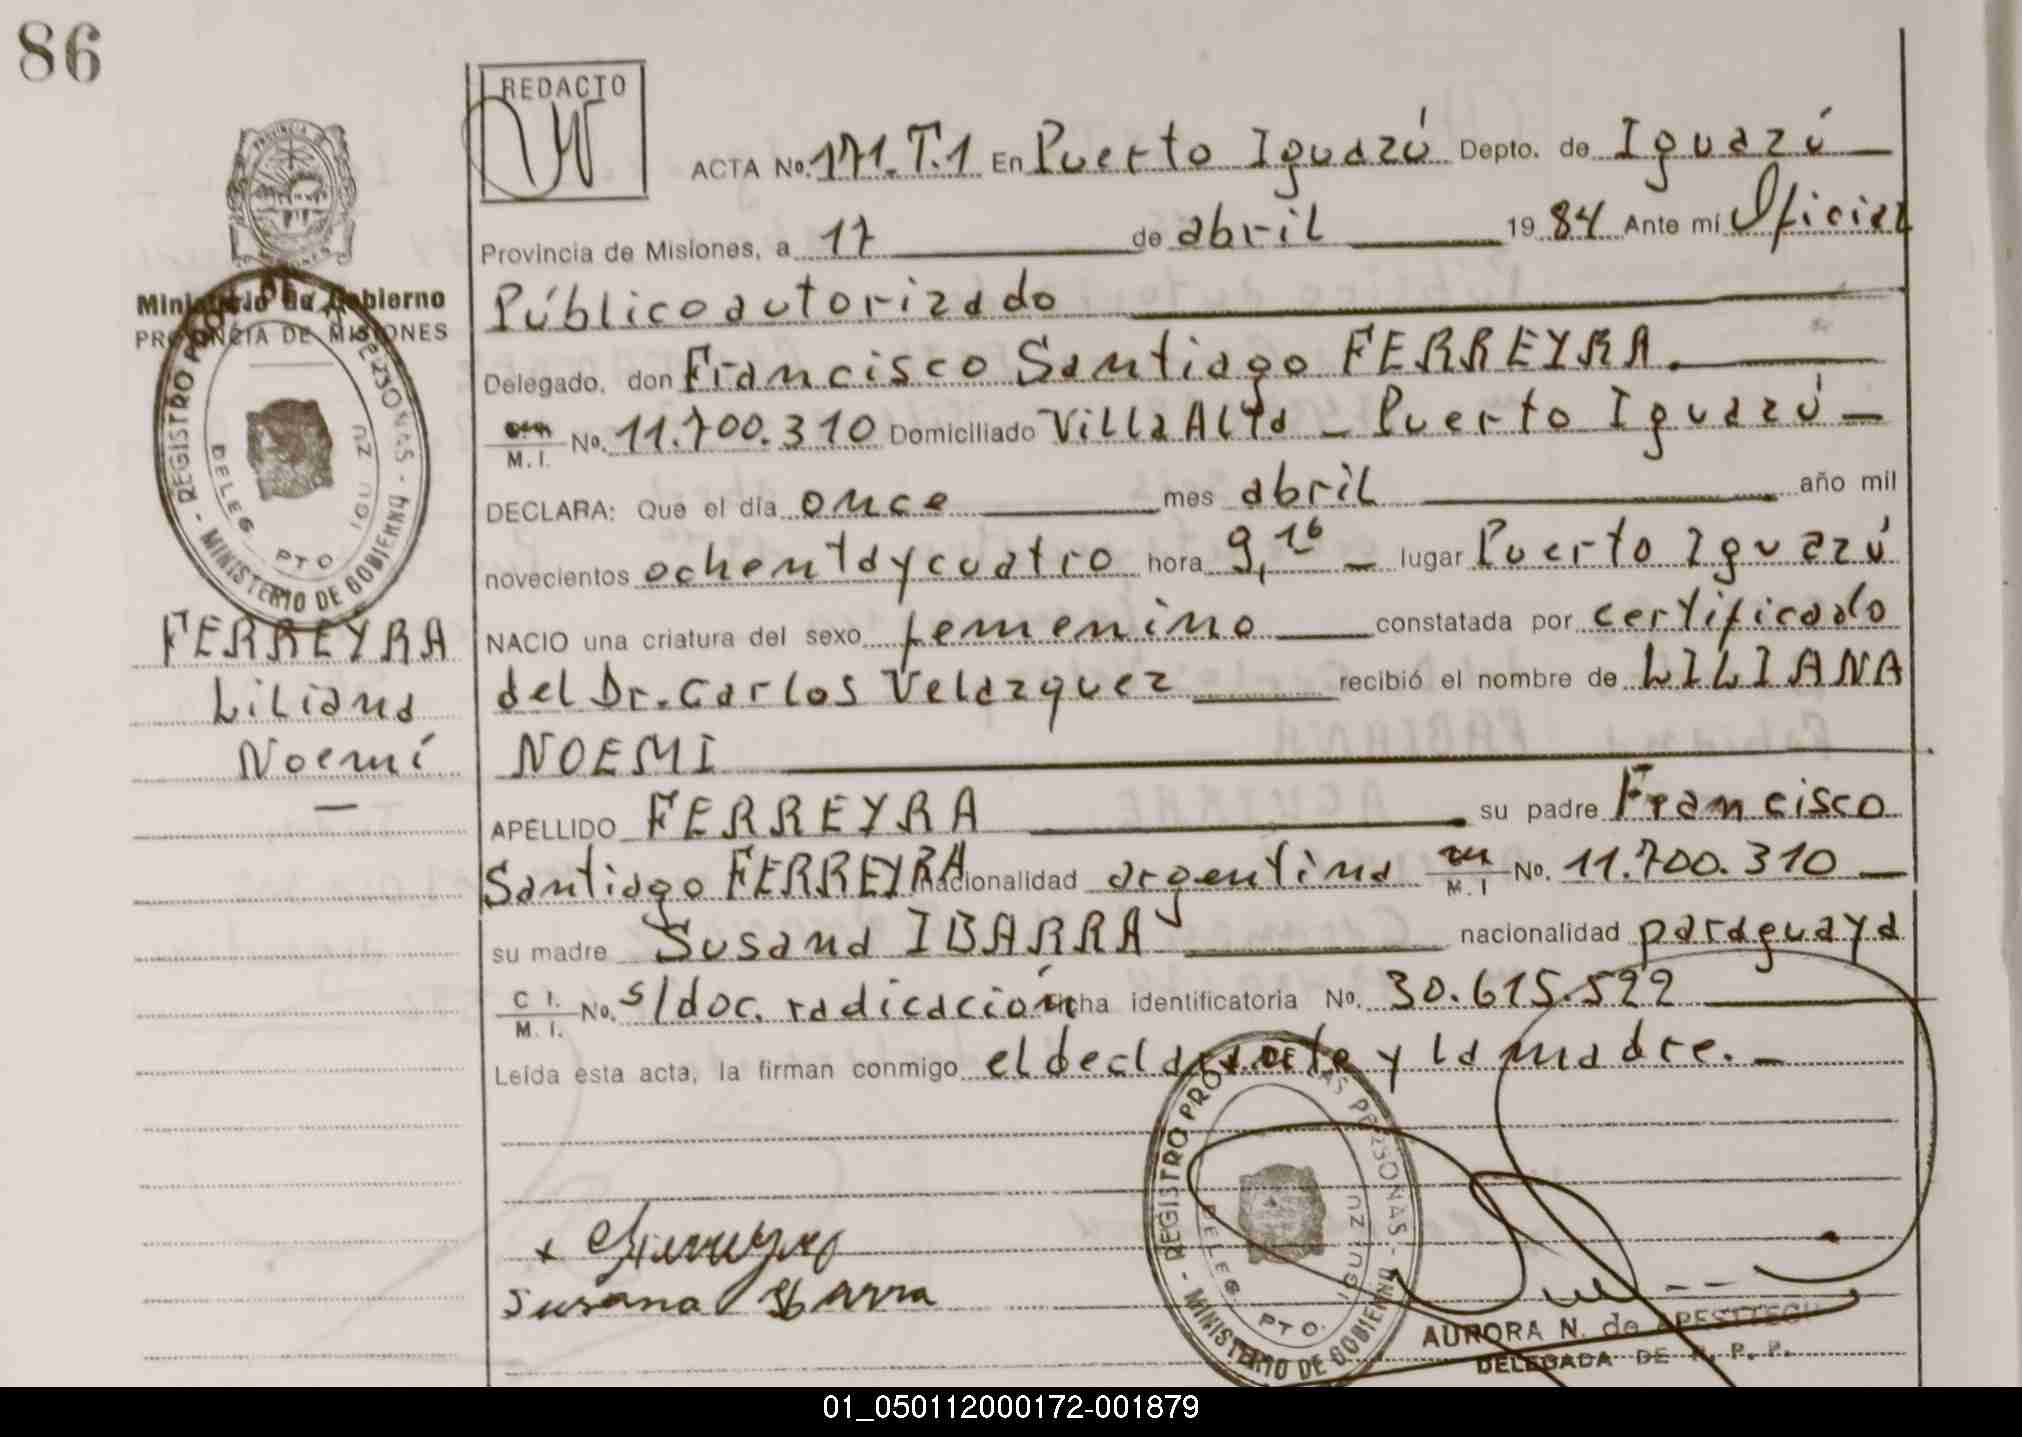 86
REDACTO
ACTA No. 171. T.1 En Puerto Iguazú Depto. de Iguazú
Provincia de Misiones, a 17 de abril 1984 Ante mí Oficial
Público autorizado
Ministerio de Gobierno
PROVINCIA DE MISIONES
Delegado, don Francisco Santiago FERREYRA.
M. I. No. 11.700.310 Domiciliado Villa Alta - Puerto Iguazú
DECLARA: Que el día once mes abril año mil
novecientos ochenta y cuatro hora 9,16 lugar Puerto Iguazú
NACIO una criatura del sexo femenino constatada por certificado
del Dr. Carlos Velazquez recibió el nombre de LILIANA
NOEMI
FERREYRA
Liliana
Noemí
APELLIDO FERREYRA su padre Francisco
Santiago FERREYRA nacionalidad argentina M. I No. 11.700.310
su madre Susana IBARRA nacionalidad paraguaya
C I. M. I. No. s/doc. radicación ficha identificatoria No. 30.615.522
Leída esta acta, la firman conmigo el declarante y la madre.
Susana Ibarra
REGISTRO PROV. DE LAS PERSONAS - MINISTERIO DE GOBIERNO
DELEG. PTO. IGUAZU
AURORA N. de
DELEGADA DE R. P. P.
01_050112000172-001879